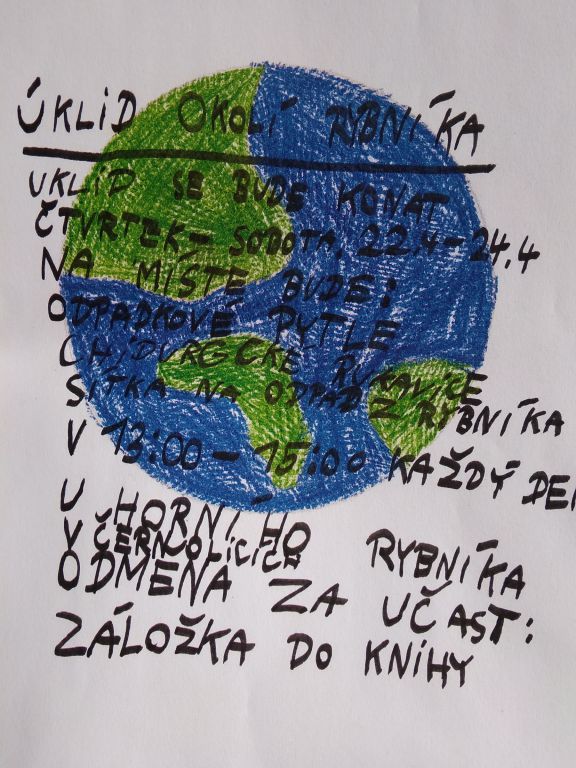 ÚKLID OKOLÍ RYBNÍKA
UKLID SE BUDE KONAT
ČTVRTEK - SOBOTA, 22.4-24.4
NA MÍSTĚ BUDE:
ODPADKOVÉ PYTLE
CHIDURGICKÉ RUKAVICE
SÍTKA NA ODPAD Z RYBNÍKA
V 13:00 - 15:00 KAŽDÝ DEN
U HORNÍHO RYBNÍKA
V ČERNOLICÍCH
ODMĚNA ZA UČAST:
ZÁLOŽKA DO KNIHY